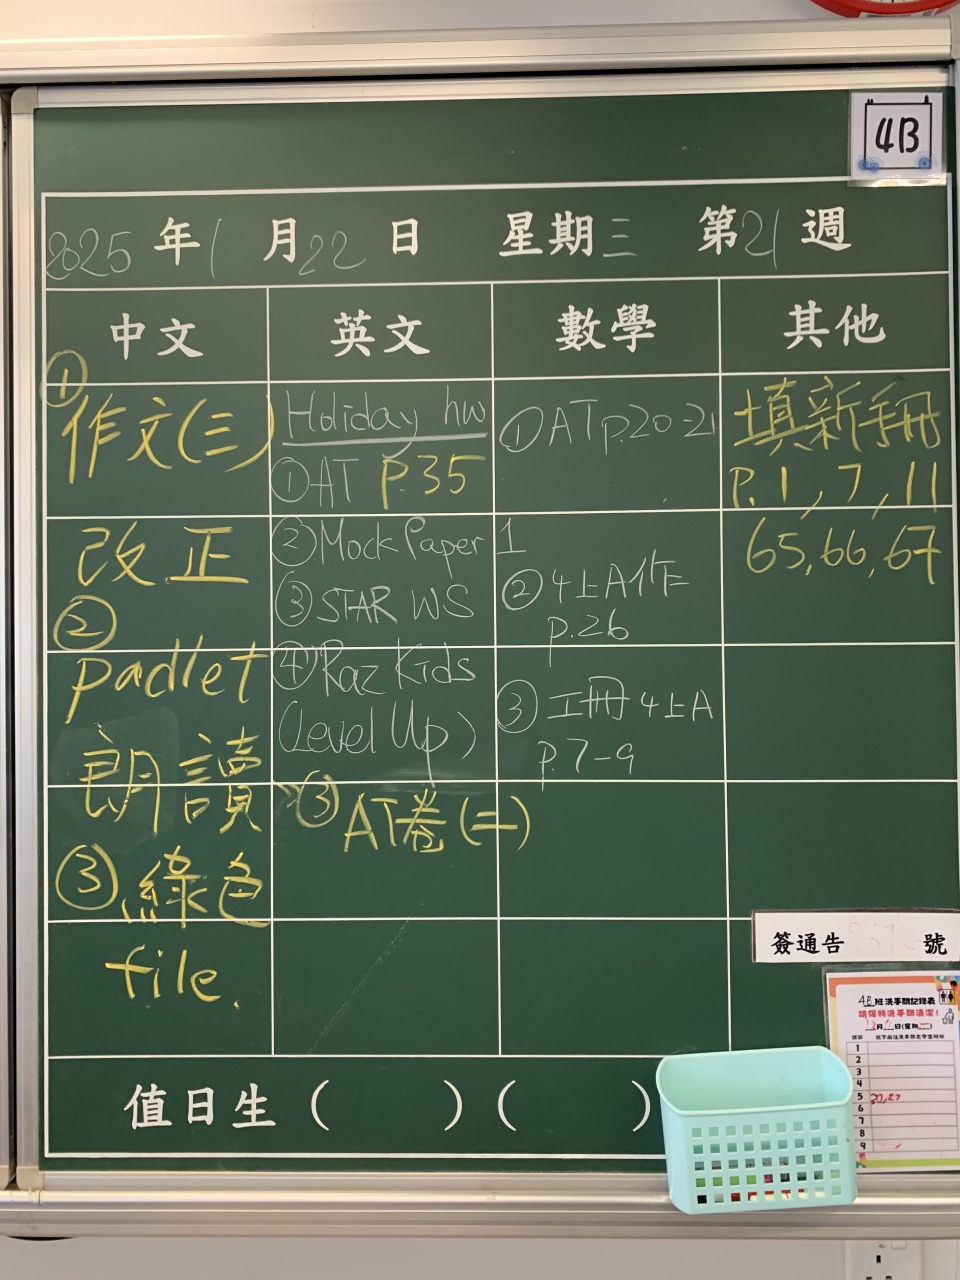 4B
2025年1月22日 星期三 第21週
中文 英文 數學 其他
①
作文(三)
改正
②
padlet
朗讀
③綠色
file.
Holiday hw
①AT P.35
②Mock Paper 1
③STAR WS
④Raz Kids
(Level Up)
③AT卷(二)
①AT p.20-21
②4上A作
p.26
③工冊4上A
p.7-9
填新手冊
P.1,7,11
65,66,67
簽通告 號
4B班洗手間記錄表
請保持洗手間清潔!
月 日(星期 )
1
2
3
4
5
6
7
8
9
值日生( )( )